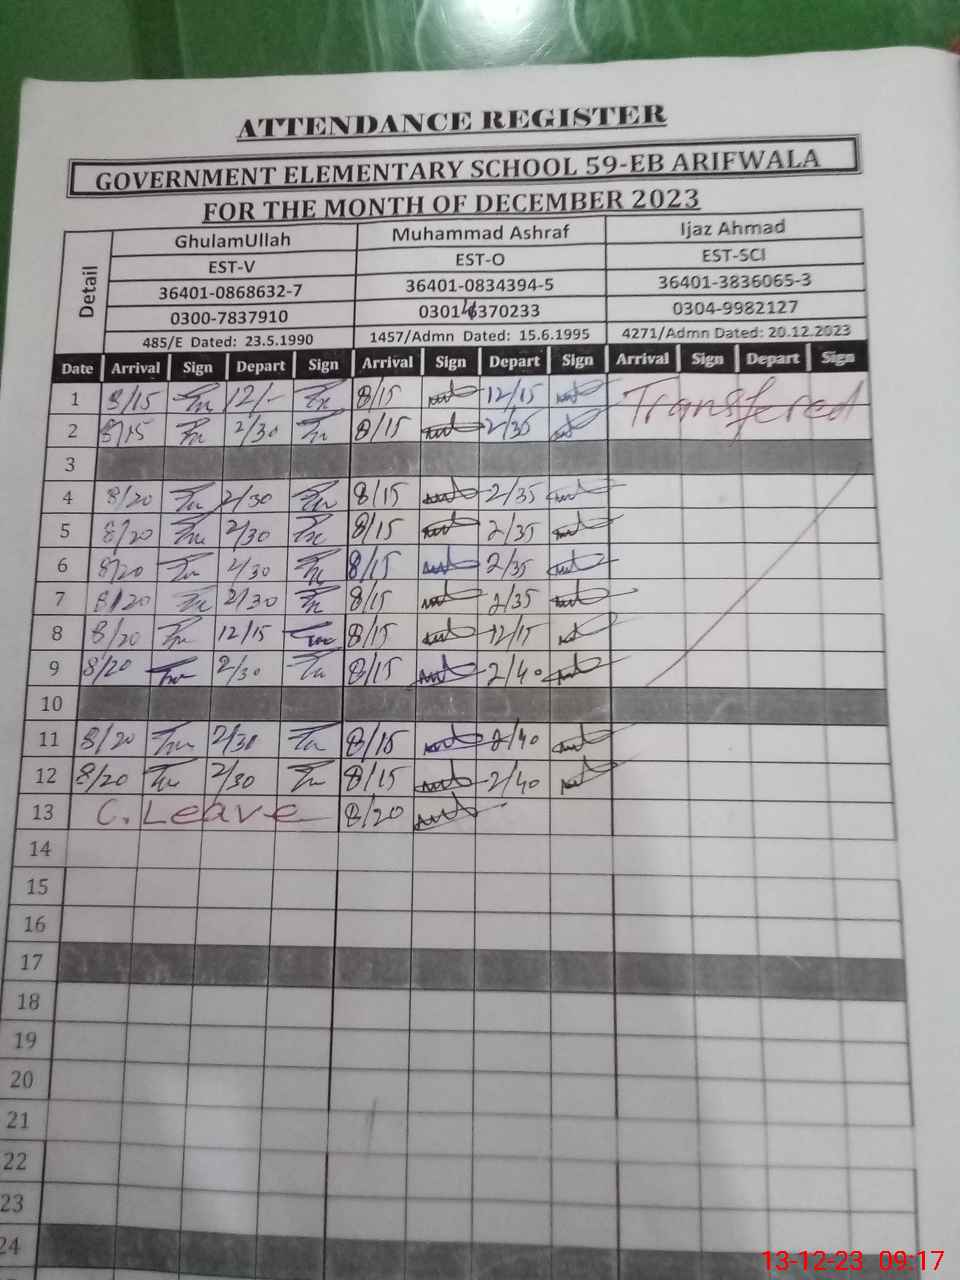 ATTENDANCE REGISTER
GOVERNMENT ELEMENTARY SCHOOL 59-EB ARIFWALA
FOR THE MONTH OF DECEMBER 2023
Detail GhulamUllah Muhammad Ashraf Ijaz Ahmad
EST-V EST-O EST-SCI
36401-0868632-7 36401-0834394-5 36401-3836065-3
0300-7837910 03014370233 0304-9982127
485/E Dated: 23.5.1990 1457/Admn Dated: 15.6.1995 4271/Admn Dated: 20.12.2023
Date Arrival Sign Depart Sign Arrival Sign Depart Sign Arrival Sign Depart Sign
1 8/15 12/- 8/15 12/15 Transfered
2 8/15 2/30 8/15 2/35
3
4 8/20 2/30 8/15 2/35
5 8/20 2/30 8/15 2/35
6 8/20 2/30 8/15 2/35
7 8/20 2/30 8/15 2/35
8 8/20 12/15 8/15 12/15
9 8/20 2/30 8/15 2/40
10
11 8/20 2/30 8/15 2/40
12 8/20 2/30 8/15 2/40
13 C.Leave 8/20
14
15
16
17
18
19
20
21
22
23
24
13-12-23 09:17